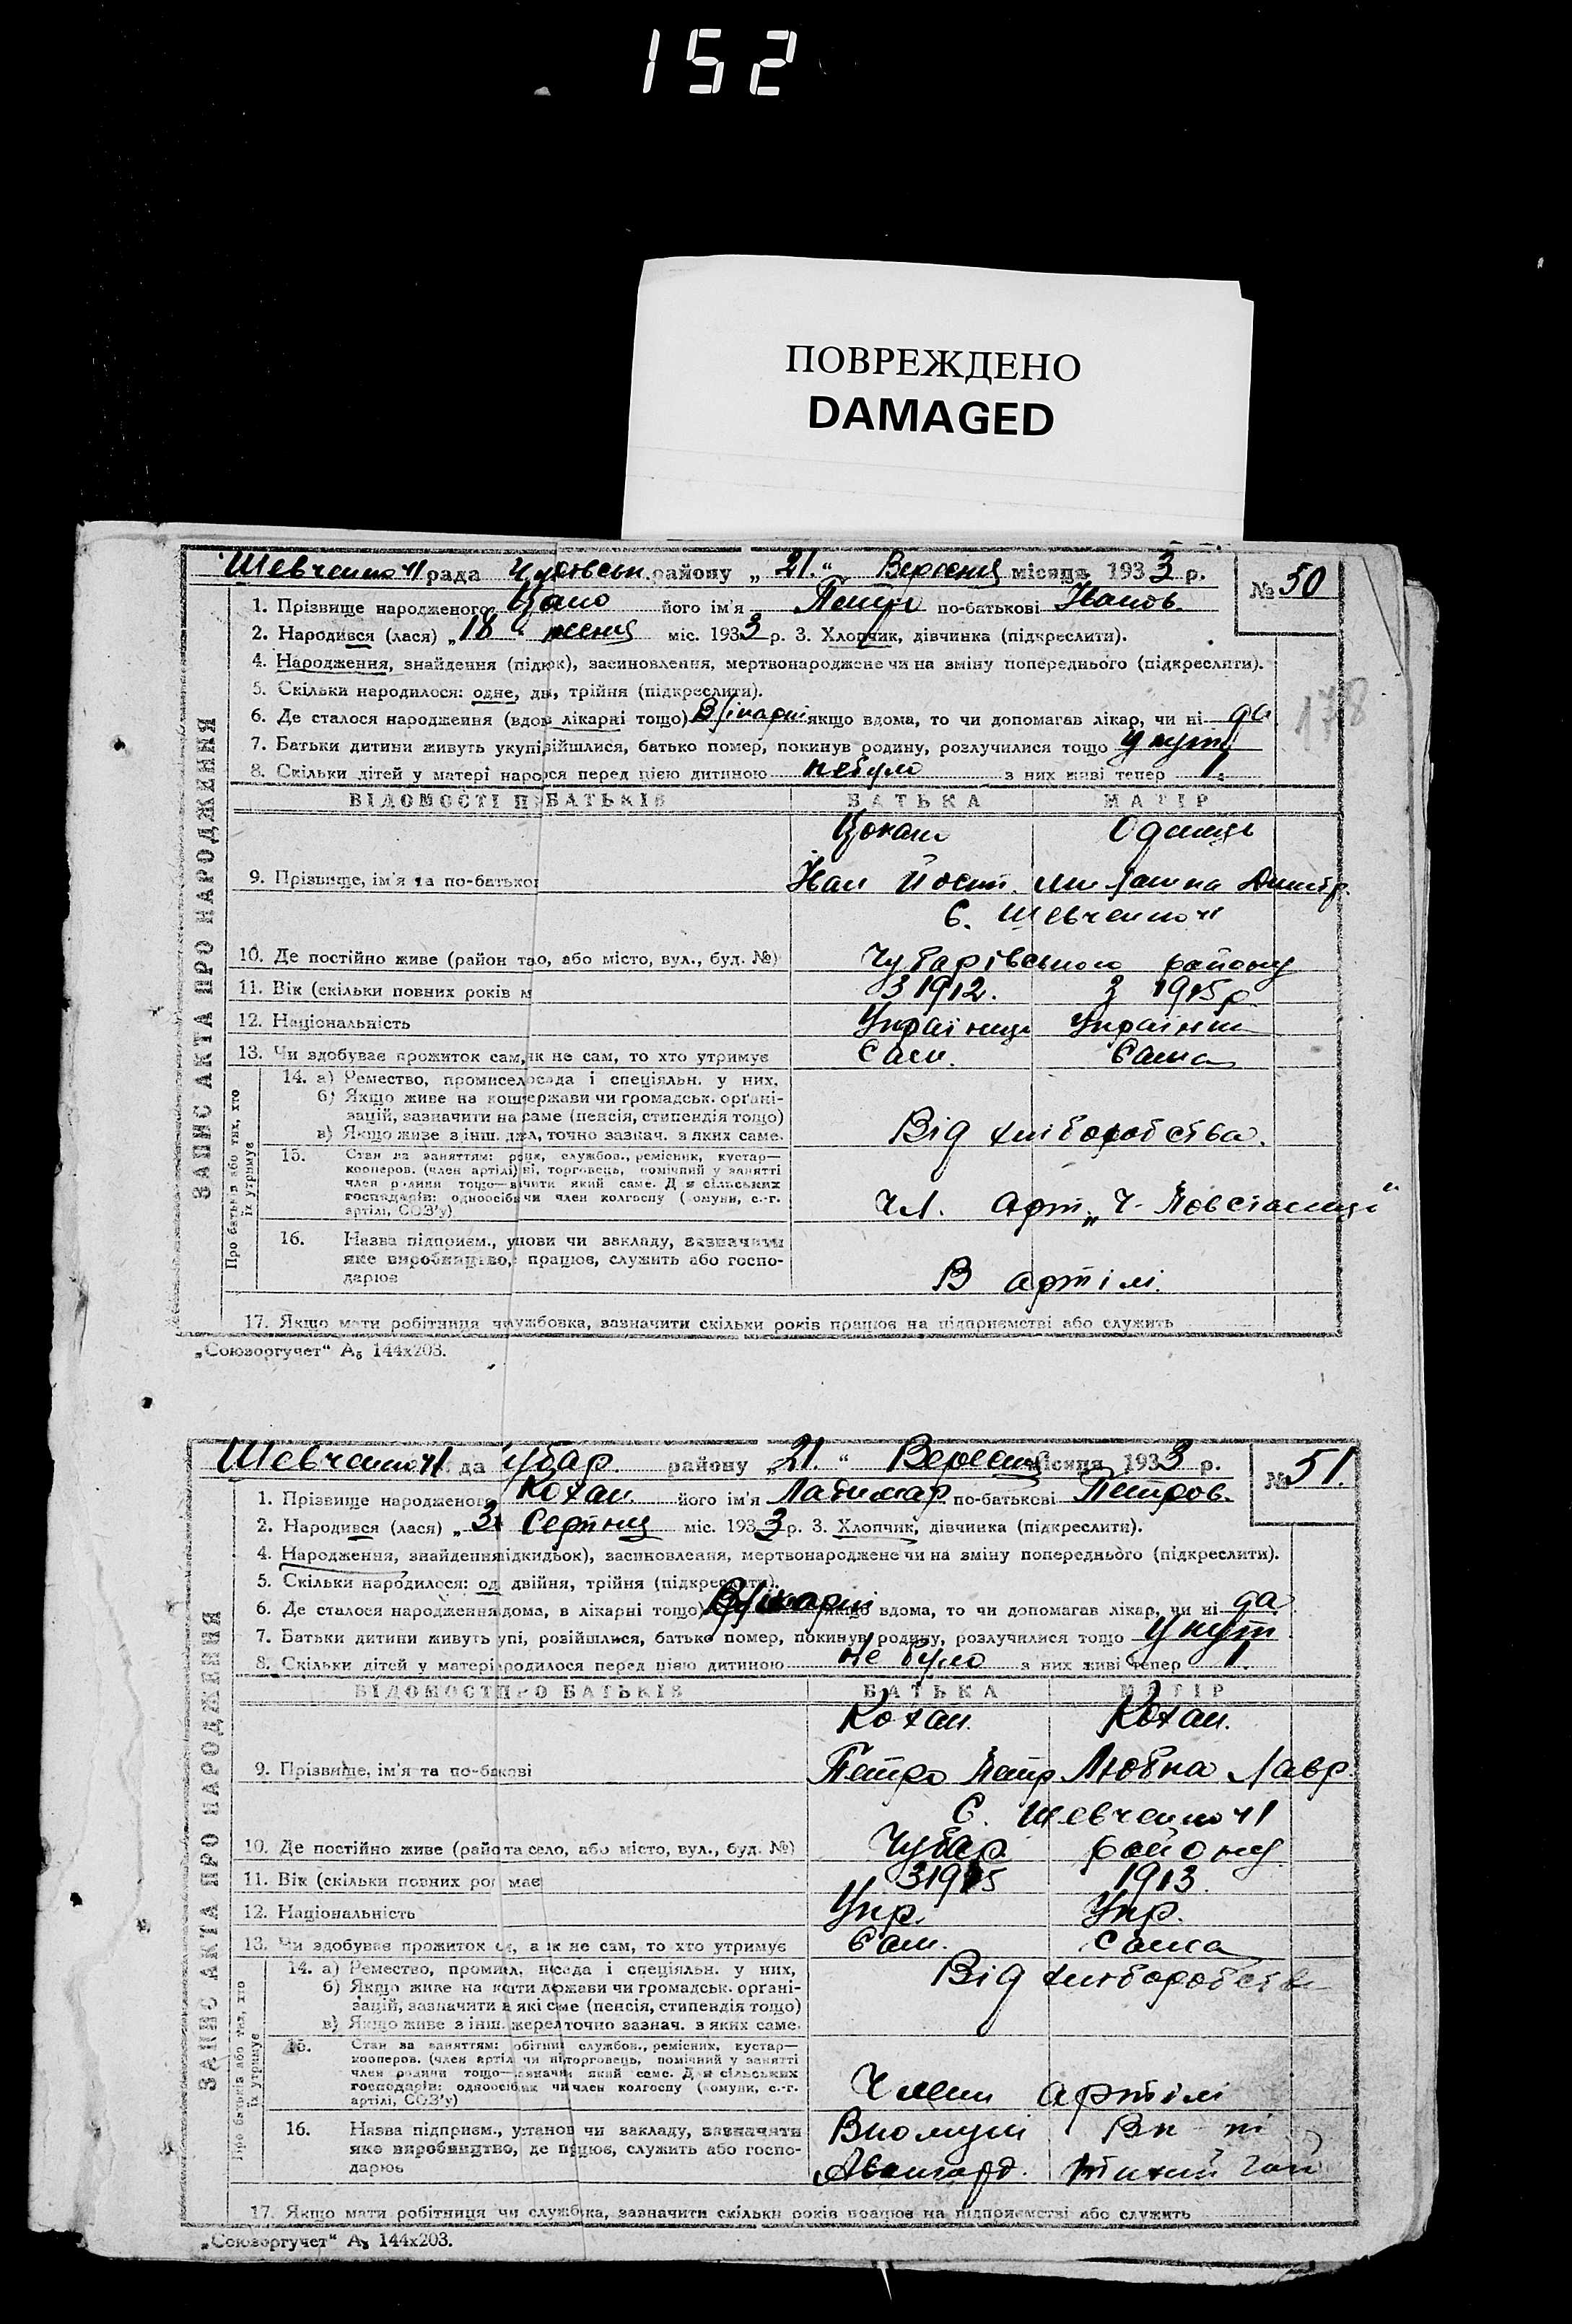 152
ПОВРЕЖДЕНО
DAMAGED
рада району „21.“ Вересня місяця 1933 р. № 50
1. Прізвище народженого його ім'я Петро по-батькові Іванов.
2. Народився (лася) „18“ міс. 1933 р. 3. Хлопчик, дівчинка (підкреслити).
178
4. Народження, знайдення засиновлення, мертвонароджене чи на зміну попереднього (підкреслити).
5. Скільки народилося: одне, трійня (підкреслити).
6. Де сталося народження лікарні тощо) В лікарні якщо вдома, то чи допомагав лікар, чи ні да
7. Батьки дитини живуть батько помер, покинув родину, розлучилися тощо
8. Скільки дітей у матері перед цією дитиною небуло з них живі тепер 1.
ВІДОМОСТІ БАТЬКІВ БАТЬКА МАТІР
9. Прізвище, ім'я та Дмитр.
с.
10. Де постійно живе (район або місто, вул., буд. №) Чубарівського району
11. Вік (скільки повних років З 1912. З 1915 р.
12. Національність Українець Українка
13. Чи здобуває прожиток сам, не сам, то хто утримує Сам. Сама
ЗАПИС АКТА ПРО НАРОДЖЕННЯ
Про батьків або тих, хто їх утримує
14. а) Ремество, і спеціяльн. у них.
б) Якщо живе на чи громадськ. органі-
зацій, зазначити на саме (пенсія, стипендія тощо)
в) Якщо живе з інш. точно зазнач. з яких саме.
Від хліборобства.
15. Стан за заняттям: службов., ремісник, кустар—
кооперов. (член артілі) торговець, помічний у занятті
член родини тощо— який саме. Для сільських
господарів: чи член колгоспу (комуни, с.-г.
артілі, СОЗ'у)
Чл. арт. „Ч.
16. Назва підприєм., чи закладу, зазначити
яке виробництво, працює, служить або госпо-
дарює
В артілі.
17. Якщо мати робітниця зазначити скільки років працює на підприємстві або служить
„Союзоргучет“ А₅ 144х203.
Чубар. району „21.“ Вересня місяця 1933 р. № 51.
1. Прізвище народженого Кохан. його ім'я по-батькові Петров.
2. Народився (лася) Серпня міс. 1933 р. 3. Хлопчик, дівчинка (підкреслити).
4. Народження, знайдення засиновлення, мертвонароджене чи на зміну попереднього (підкреслити).
5. Скільки народилося: двійня, трійня (підкреслити).
6. Де сталося народження в лікарні тощо) В лікарні вдома, то чи допомагав лікар, чи ні да
7. Батьки дитини живуть розійшлися, батько помер, покинув родину, розлучилися тощо
8. Скільки дітей у матері перед цією дитиною не було з них живі тепер 1.
ВІДОМОСТІ ПРО БАТЬКІВ БАТЬКА МАТІР
Кохан. Кохан.
9. Прізвище, ім'я та Петро Петр. Лавр.
с.
10. Де постійно живе та село, або місто, вул., буд. №) Чубар. району
11. Вік (скільки повних має З 1915 1913.
12. Національність Укр. Укр.
13. Чи здобуває прожиток не сам, то хто утримує Сам. сама
ЗАПИС АКТА ПРО НАРОДЖЕННЯ
Про батьків або тих, хто їх утримує
14. а) Ремество, посада і спеціяльн. у них,
б) Якщо живе на держави чи громадськ. органі-
зацій, зазначити які саме (пенсія, стипендія тощо)
в) Якщо живе з інш. точно зазнач. з яких саме.
Від
15. Стан за заняттям: службов., ремісник, кустар—
кооперов. (член чи торговець, помічний у занятті
член родини тощо— який саме. Для сільських
господарів: чи член колгоспу (комуни, с.-г.
артілі, СОЗ'у)
Член артілі
16. Назва підприєм., чи закладу, зазначити
яке виробництво, де працює, служить або госпо-
дарює
Вкомуні
Авангард. гай
17. Якщо мати робітниця чи зазначити скільки років працює на підприємстві або служить
„Союзоргучет“ А₅ 144х203.